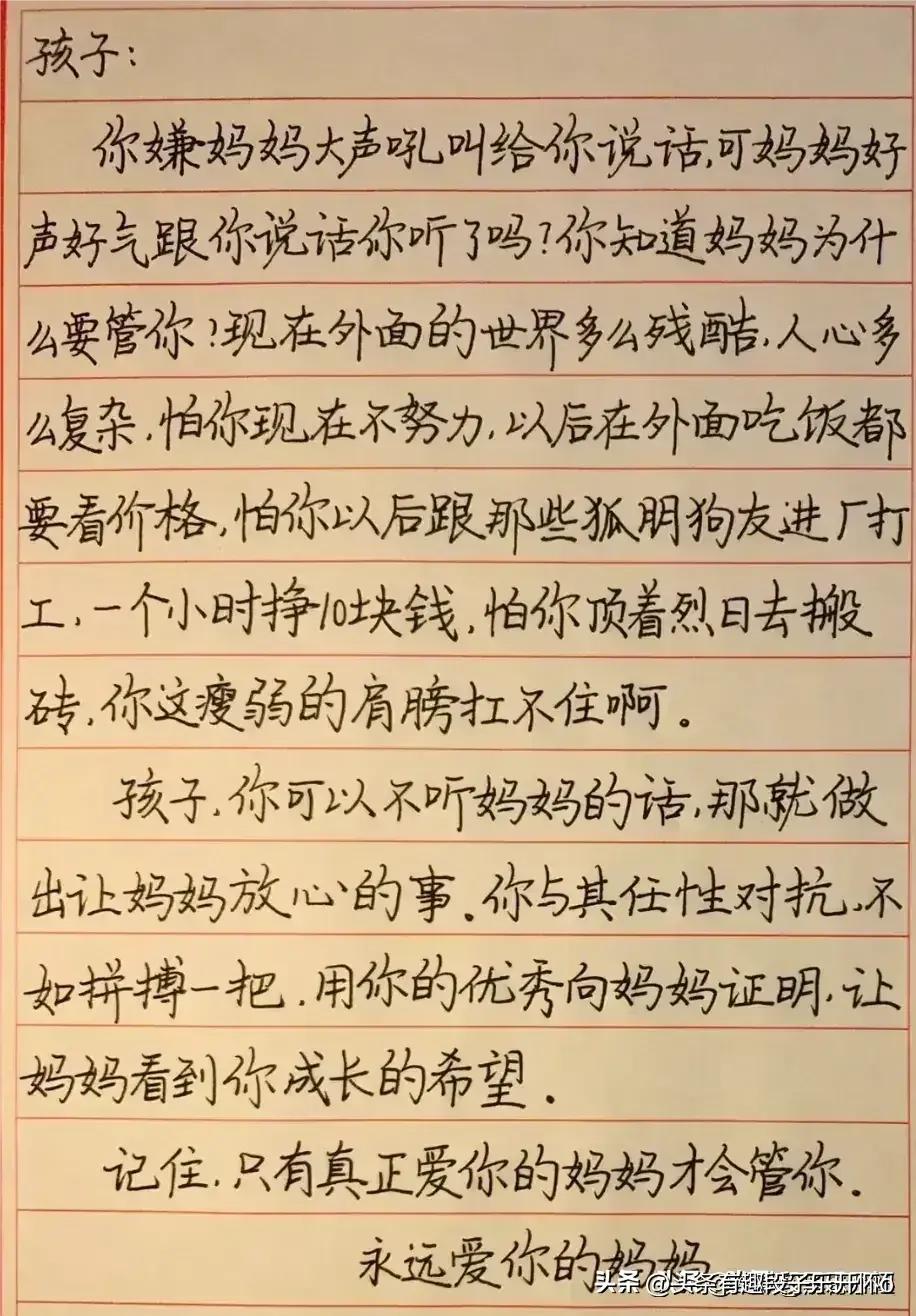 孩子：
你嫌妈妈大声吼叫给你说话,可妈妈好
声好气跟你说话你听了吗?你知道妈妈为什
么要管你!现在外面的世界多么残酷,人心多
么复杂,怕你现在不努力,以后在外面吃饭都
要看价格,怕你以后跟那些狐朋狗友进厂打
工,一个小时挣10块钱,怕你顶着烈日去搬
砖,你这瘦弱的肩膀扛不住啊。
孩子,你可以不听妈妈的话,那就做
出让妈妈放心的事.你与其任性对抗,不
如拼搏一把.用你的优秀向妈妈证明,让
妈妈看到你成长的希望.
记住,只有真正爱你的妈妈才会管你.
永远爱你的妈妈
头条 @头条有趣段子